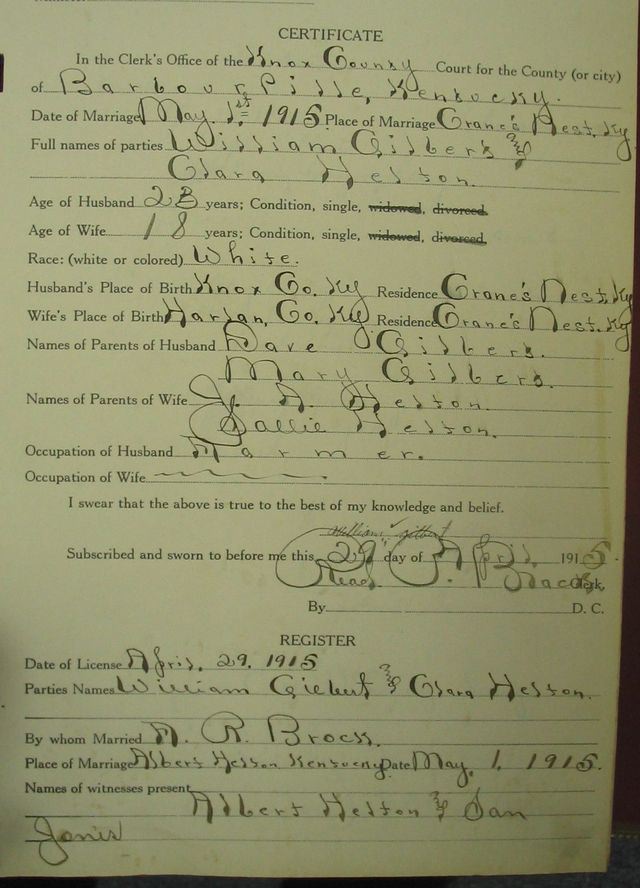 CERTIFICATE
In the Clerk's Office of the Knox County Court for the County (or city)
of Barbourville, Kentucky.
Date of Marriage May. 1st 1915 Place of Marriage Crane's Nest, Ky
Full names of parties William Gilbert &
Clara Helton.
Age of Husband 23 years; Condition, single, widowed, divorced.
Age of Wife 18 years; Condition, single, widowed, divorced.
Race: (white or colored) White.
Husband's Place of Birth Knox Co. Ky Residence Crane's Nest, Ky
Wife's Place of Birth Harlan, Co. Ky Residence Crane's Nest, Ky
Names of Parents of Husband Dave Gilbert.
Mary Gilbert.
Names of Parents of Wife J. A. Helton.
Sallie Helton.
Occupation of Husband Farmer.
Occupation of Wife
I swear that the above is true to the best of my knowledge and belief.
William Gilbert
Subscribed and sworn to before me this 29 day of April. 1915.
Read P. Black Clerk.
By D. C.
REGISTER
Date of License April. 29. 1915
Parties Names William Gilbert & Clara Helton.
By whom Married A. R. Brock.
Place of Marriage Albert Helton Kentucky Date May. 1. 1915.
Names of witnesses present
Albert Helton & Dan
Jones